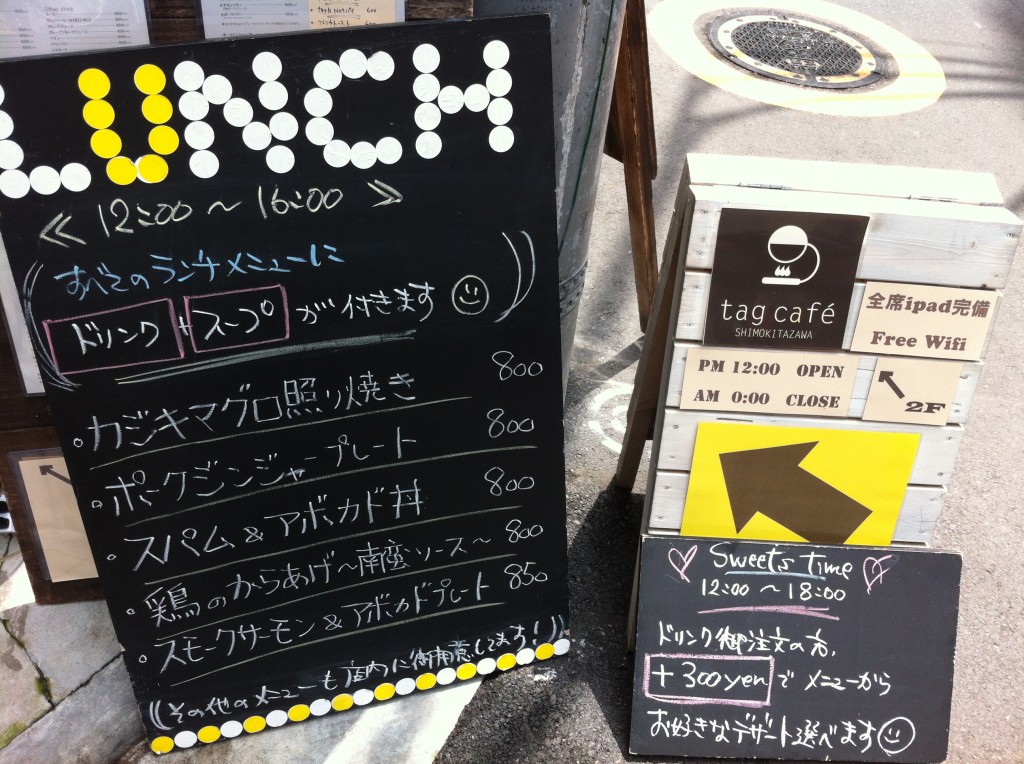 LUNCH
≪ 12:00 ～ 16:00 ≫
すべてのランチメニューに
ドリンク + スープ が付きます
。カジキマグロ照り焼き 800
。ポークジンジャープレート 800
。スパム&アボカド丼 800
。鶏のからあげ～南蛮ソース～ 800
。スモークサーモン&アボカドプレート 850
((その他のメニューも店内に御用意してます!))
tag café
SHIMOKITAZAWA
全席ipad完備
Free Wifi
PM 12:00 OPEN
AM 0:00 CLOSE
2F
Sweets time
12:00 ～ 18:00
ドリンク御注文の方、
+300yen で メニューから
お好きなデザート選べます